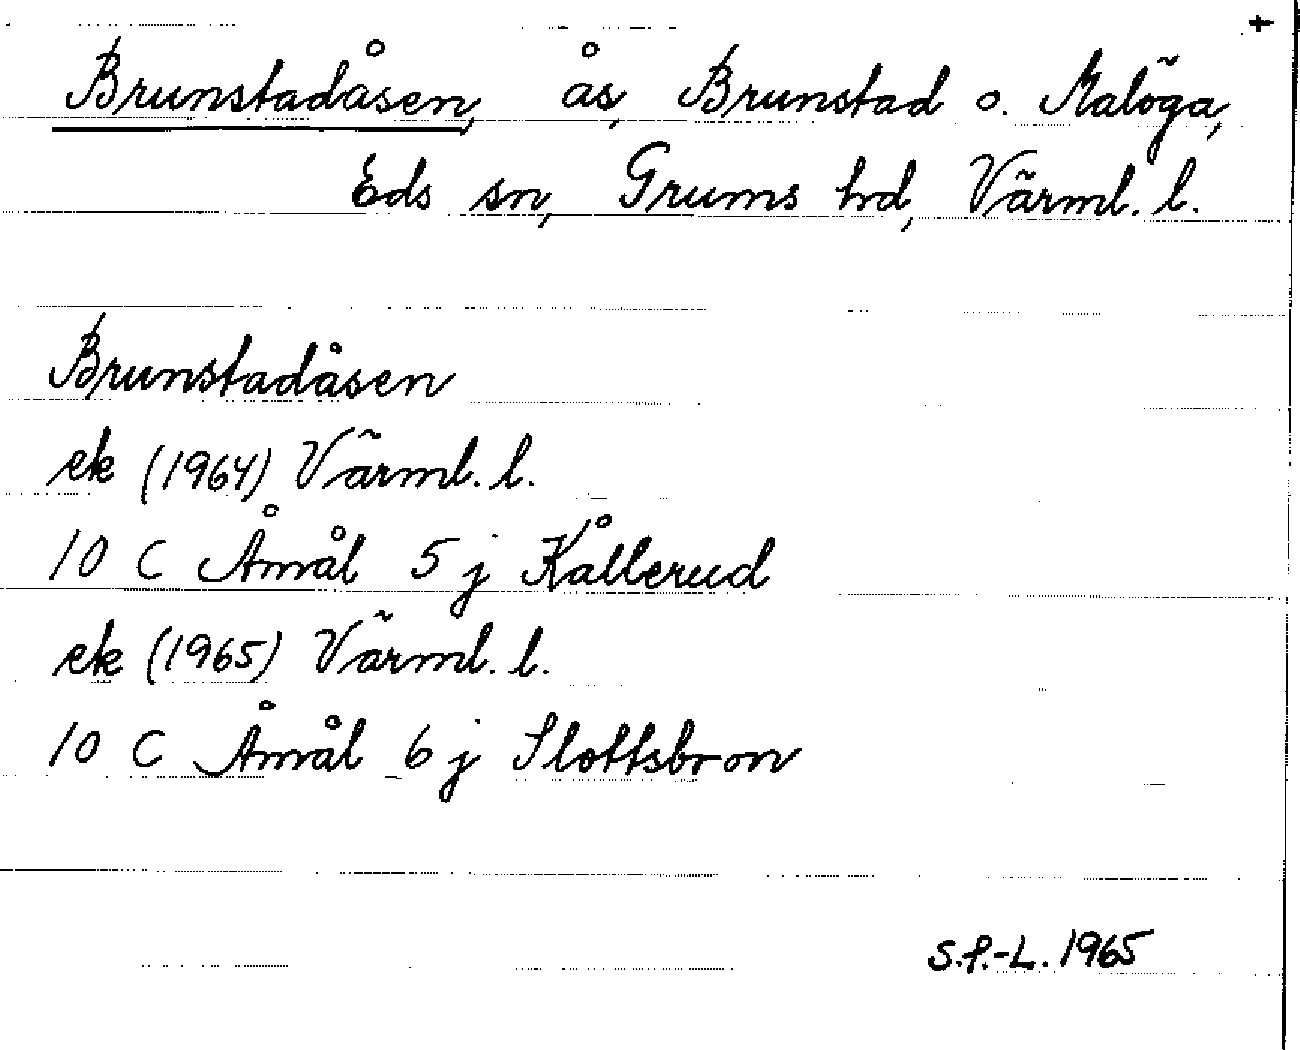 +
Brunstadåsen, ås, Brunstad o. Malöga,
Eds sn, Grums hd, Värml. l.
Brunstadåsen
ek (1964) Värml. l.
10 C Åmål 5 j Kållerud
ek (1965) Värml. l.
10 C Åmål 6 j Slottsbron
S.P.-L. 1965